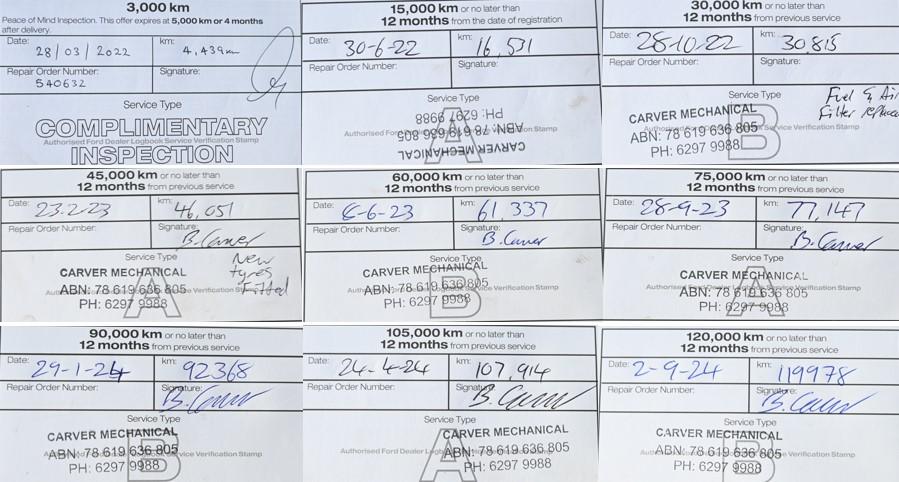 3,000 km
Peace of Mind Inspection. This offer expires at 5,000 km or 4 months
after delivery.
Date: 28/03/2022 km: 4,439km
Repair Order Number: 540632 Signature:
Service Type
COMPLIMENTARY
Authorised Ford Dealer Logbook Service Verification Stamp
INSPECTION
15,000 km or no later than
12 months from the date of registration
Date: 30-6-22 km: 16,531
Repair Order Number: Signature:
Service Type
A
PH: 6297 9988
Authorised Ford Stamp
ABN: 78 619 636 805
CARVER MECHANICAL
30,000 km or no later than
12 months from previous service
Date: 28-10-22 km: 30,815
Repair Order Number: Signature:
Service Type
B
Fuel & Air
Filter replace
CARVER MECHANICAL
ABN: 78 619 636 805
Service Verification Stamp
PH: 6297 9988
45,000 km or no later than
12 months from previous service
Date: 23.2.23 km: 46,051
Repair Order Number: Signature: B.Carver
Service Type
A
New
tyres
Fitted
CARVER MECHANICAL
ABN: 78 619 636 805
PH: 6297 9988
60,000 km or no later than
12 months from previous service
Date: 6-6-23 km: 61,337
Repair Order Number: Signature: B.Carver
Service Type
B
CARVER MECHANICAL
ABN: 78 619 636 805
Service Verification Stamp
PH: 6297 9988
75,000 km or no later than
12 months from previous service
Date: 28-9-23 km: 77,147
Repair Order Number: Signature: B.Carver
Service Type
A
CARVER MECHANICAL
ABN: 78 619 636 805
Verification Stamp
PH: 6297 9988
90,000 km or no later than
12 months from previous service
Date: 29-1-24 km: 92368
Repair Order Number: Signature: B.Carver
Service Type
B
CARVER MECHANICAL
ABN: 78 619 636 805
Service Verification Stamp
PH: 6297 9988
105,000 km or no later than
12 months from previous service
Date: 24-4-24 km: 107,914
Repair Order Number: Signature: B.Carver
Service Type
A
CARVER MECHANICAL
Authorised Ford Dealer
ABN: 78 619 636 805
PH: 6297 9988
120,000 km or no later than
12 months from previous service
Date: 2-9-24 km: 119978
Repair Order Number: Signature: B.Carver
Service Type
B
CARVER MECHANICAL
ABN: 78 619 636 805
Service Verification Stamp
PH: 6297 9988